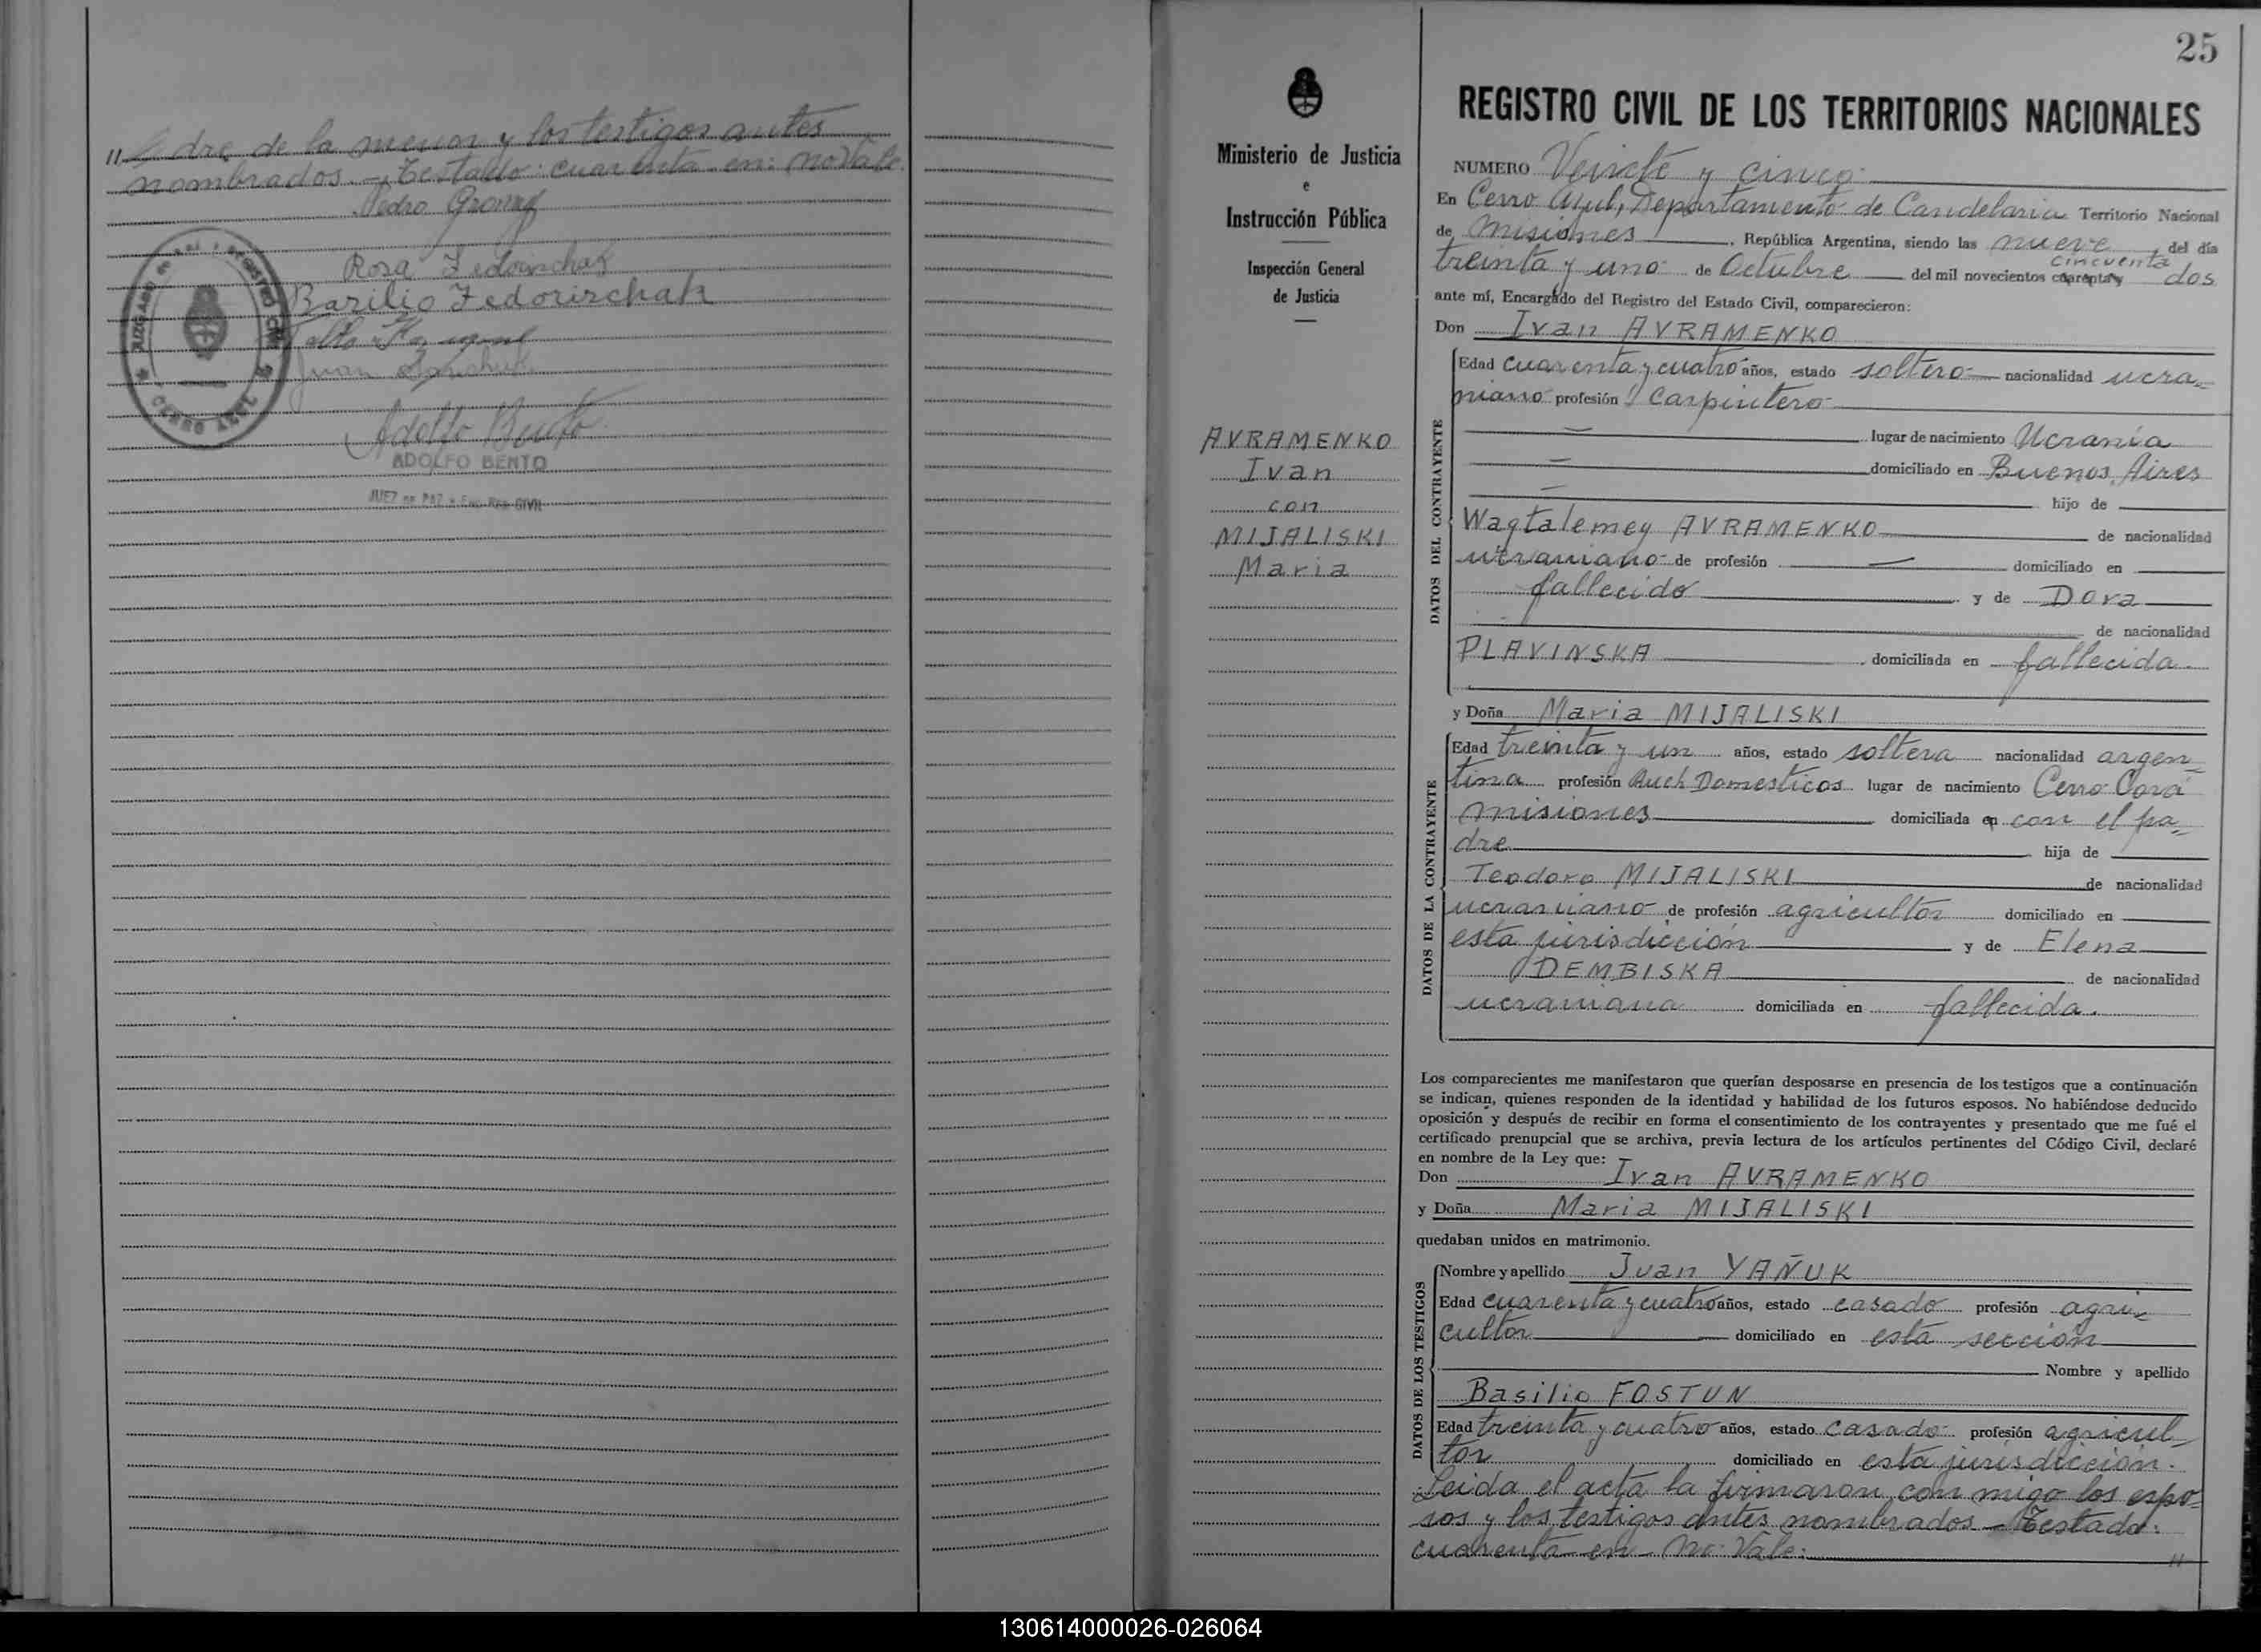 "dre de la menor y los testigos antes
nombrados.- Testado: cuarenta en: no Vale.
Pedro
Rosa Fedorischak
Basilio Fedorischak
Juan
Adolfo Bento
ADOLFO BENTO
JUEZ DE PAZ - Enc. Reg. CIVIL
JUZGADO DE PAZ Y REGISTRO CIVIL
CERRO AZUL
25
Ministerio de Justicia
e
Instrucción Pública
Inspección General
de Justicia
AVRAMENKO
Ivan
con
MIJALISKI
Maria
REGISTRO CIVIL DE LOS TERRITORIOS NACIONALES
NUMERO Veinte y cinco
En Cerro Azul, Departamento de Candelaria Territorio Nacional
de Misiones, República Argentina, siendo las nueve del día
cincuenta
treinta y uno de Octubre del mil novecientos cuarenta y dos
ante mí, Encargado del Registro del Estado Civil, comparecieron:
Don Ivan AVRAMENKO
DATOS DEL CONTRAYENTE
Edad cuarenta y cuatro años, estado soltero nacionalidad ucra-
niano profesión Carpintero
lugar de nacimiento Ucrania
domiciliado en Buenos Aires
hijo de
Wagtalemey AVRAMENKO de nacionalidad
ucraniano de profesión — domiciliado en
fallecido y de Dora
de nacionalidad
PLAVINSKA domiciliada en fallecida.
y Doña Maria MIJALISKI
DATOS DE LA CONTRAYENTE
Edad treinta y un años, estado soltera nacionalidad argen-
tina profesión Queh Domesticos lugar de nacimiento Cerro Corá
Misiones domiciliada en con el pa-
dre hija de
Teodoro MIJALISKI de nacionalidad
ucraniano de profesión agricultor domiciliado en
esta jurisdicción y de Elena
DEMBISKA de nacionalidad
ucraniana domiciliada en fallecida.
Los comparecientes me manifestaron que querían desposarse en presencia de los testigos que a continuación
se indican, quienes responden de la identidad y habilidad de los futuros esposos. No habiéndose deducido
oposición y después de recibir en forma el consentimiento de los contrayentes y presentado que me fué el
certificado prenupcial que se archiva, previa lectura de los artículos pertinentes del Código Civil, declaré
en nombre de la Ley que:
Don Ivan AVRAMENKO
y Doña Maria MIJALISKI
quedaban unidos en matrimonio.
DATOS DE LOS TESTIGOS
Nombre y apellido Juan YAÑUK
Edad cuarenta y cuatro años, estado casado profesión agri-
cultor domiciliado en esta sección
Nombre y apellido
Basilio FOSTUN
Edad treinta y cuatro años, estado casado profesión agricul-
tor domiciliado en esta jurisdicción.
Leida el acta la firmaron con migo los espo-
sos y los testigos antes nombrados - Testado:
cuarenta en - No Vale: "
130614000026-026064